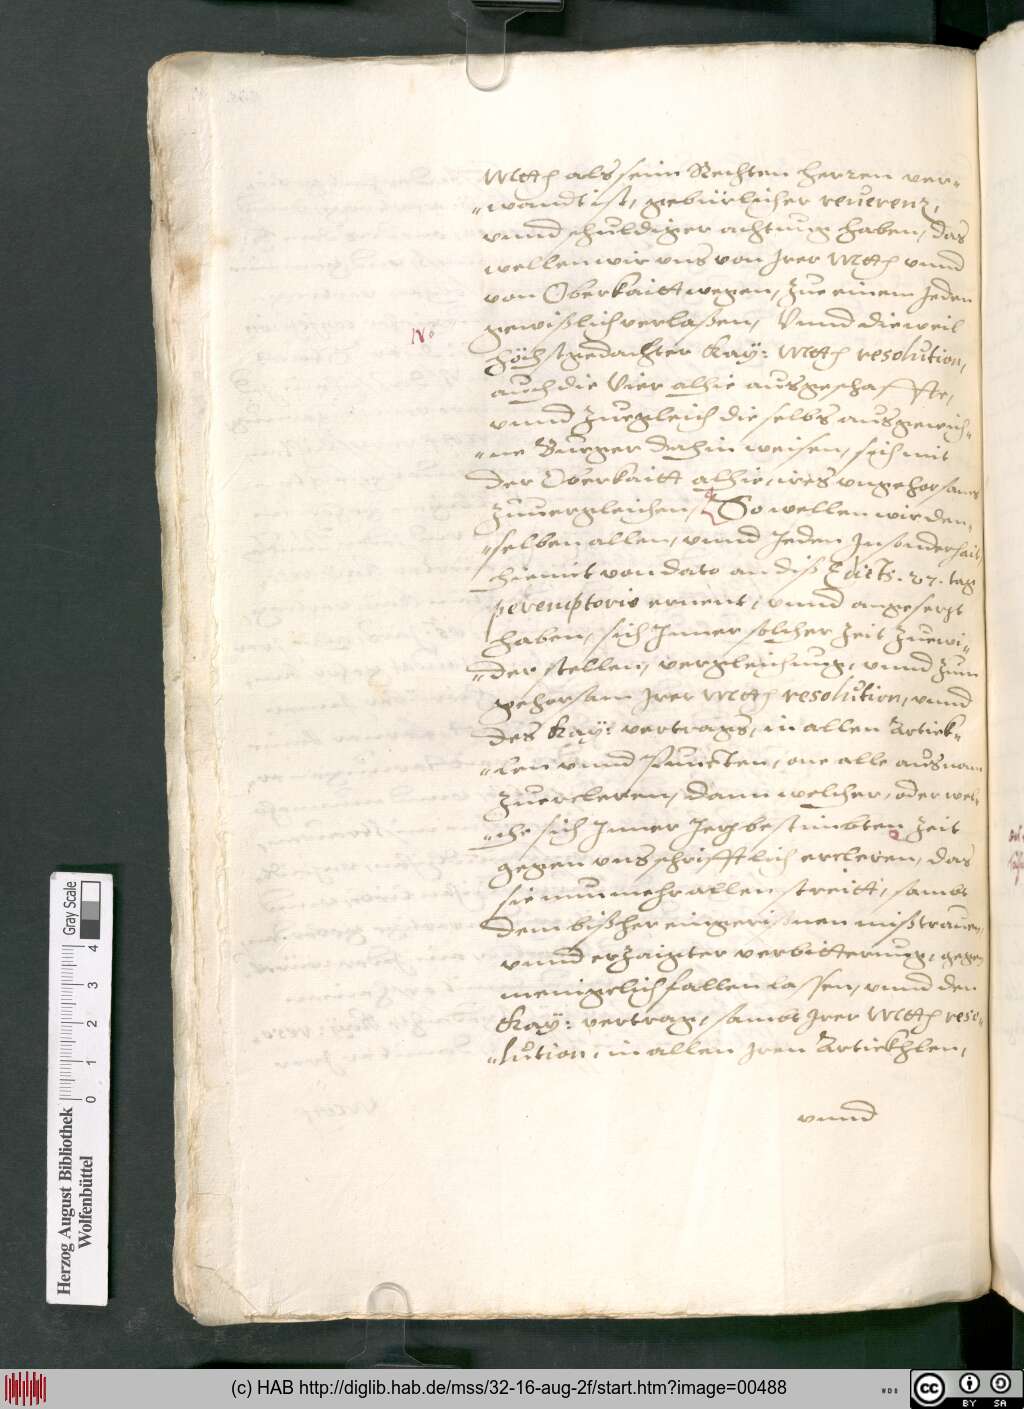 Mtt als seim Rechten herren ver-
wandt ist, gebürlicher reverenz,
vnnd schuldiger achtung haben, das
wellen wir vns von Jrer Mtt vnnd
von Oberkaitt wegen, zue einem Jeden
gewißlich verlaßen, Vnnd dieweil
No
höchstgedachter Kaÿ: Mtt resolution,
auch die Vier alhie ausgeschaffte,
vnnd zuegleich die selbs ausgewich-
ne Burger dahin weisen, sich mit
der Oberkaitt alhie, ires vngehorsams
zuuergleichen, So wellen wir den-
selben allen, vnnd Jeden Jnsonderhait,
hiemit von dato an diß Edicts . 27 . tag
peremptorie ernent, vnnd angesetzt
haben, sich Jnner solcher Zeit zuewi-
der stellen, vergleichung, vnnd zum
gehorsam Jrer Mtt resolution, vnnd
des Kaÿ: vertrags, in allen Artick-
len vnnd Puncten, one alle ausnam
zuercleren, dann welcher, oder wel-
che sich Jnner Jetzbestimbten Zeit
gegen vns schrifftlich ercleren, das
sie nunmehr allen streitt, sambt
dem bißher eingerißnen mißtrauen,
vnnd erzaigter verbitterung, gegen
menigelich fallen lassen, vnnd den
Kaÿ: vertrag, sambt Jrer Mtt reso-
lution, in allen Jren Artickhlen,
vnnd
Herzog August Bibliothek
Wolfenbüttel
0 1 2 3 4
Gray Scale
(c) HAB http://diglib.hab.de/mss/32-16-aug-2f/start.htm?image=00488
WDB
cc
BY SA